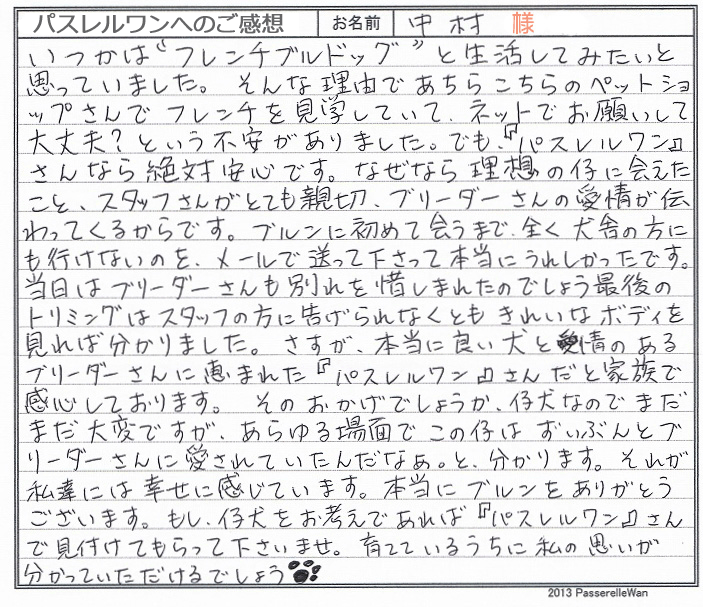 パスレルワンへのご感想 お名前 中村 様
いつかは“フレンチブルドッグ”と生活してみたいと
思っていました。そんな理由であちらこちらのペットショ
ップさんでフレンチを見学していて、ネットでお願いして
大丈夫?という不安がありました。でも、『パスレルワン』
さんなら絶対安心です。なぜなら理想の仔に会えた
こと、スタッフさんがとても親切、ブリーダーさんの愛情が伝
わってくるからです。ブルンに初めて会うまで、全く犬舎の方に
も行けないのを、メールで送って下さって本当にうれしかったです。
当日はブリーダーさんも別れを惜しまれたのでしょう最後の
トリミングはスタッフの方に告げられなくともきれいなボディを
見れば分かりました。さすが、本当に良い犬と愛情のある
ブリーダーさんに恵まれた『パスレルワン』さんだと家族で
感心しております。そのおかげでしょうか、仔犬なのでまだ
まだ大変ですが、あらゆる場面でこの仔はずいぶんとブ
リーダーさんに愛されていたんだなぁ。と、分かります。それが
私達には幸せに感じています。本当にブルンをありがとう
ございます。もし、仔犬をお考えであれば『パスレルワン』さん
で見付けてもらって下さいませ。育てているうちに私の思いが
分かっていただけるでしょう
2013 PasserelleWan